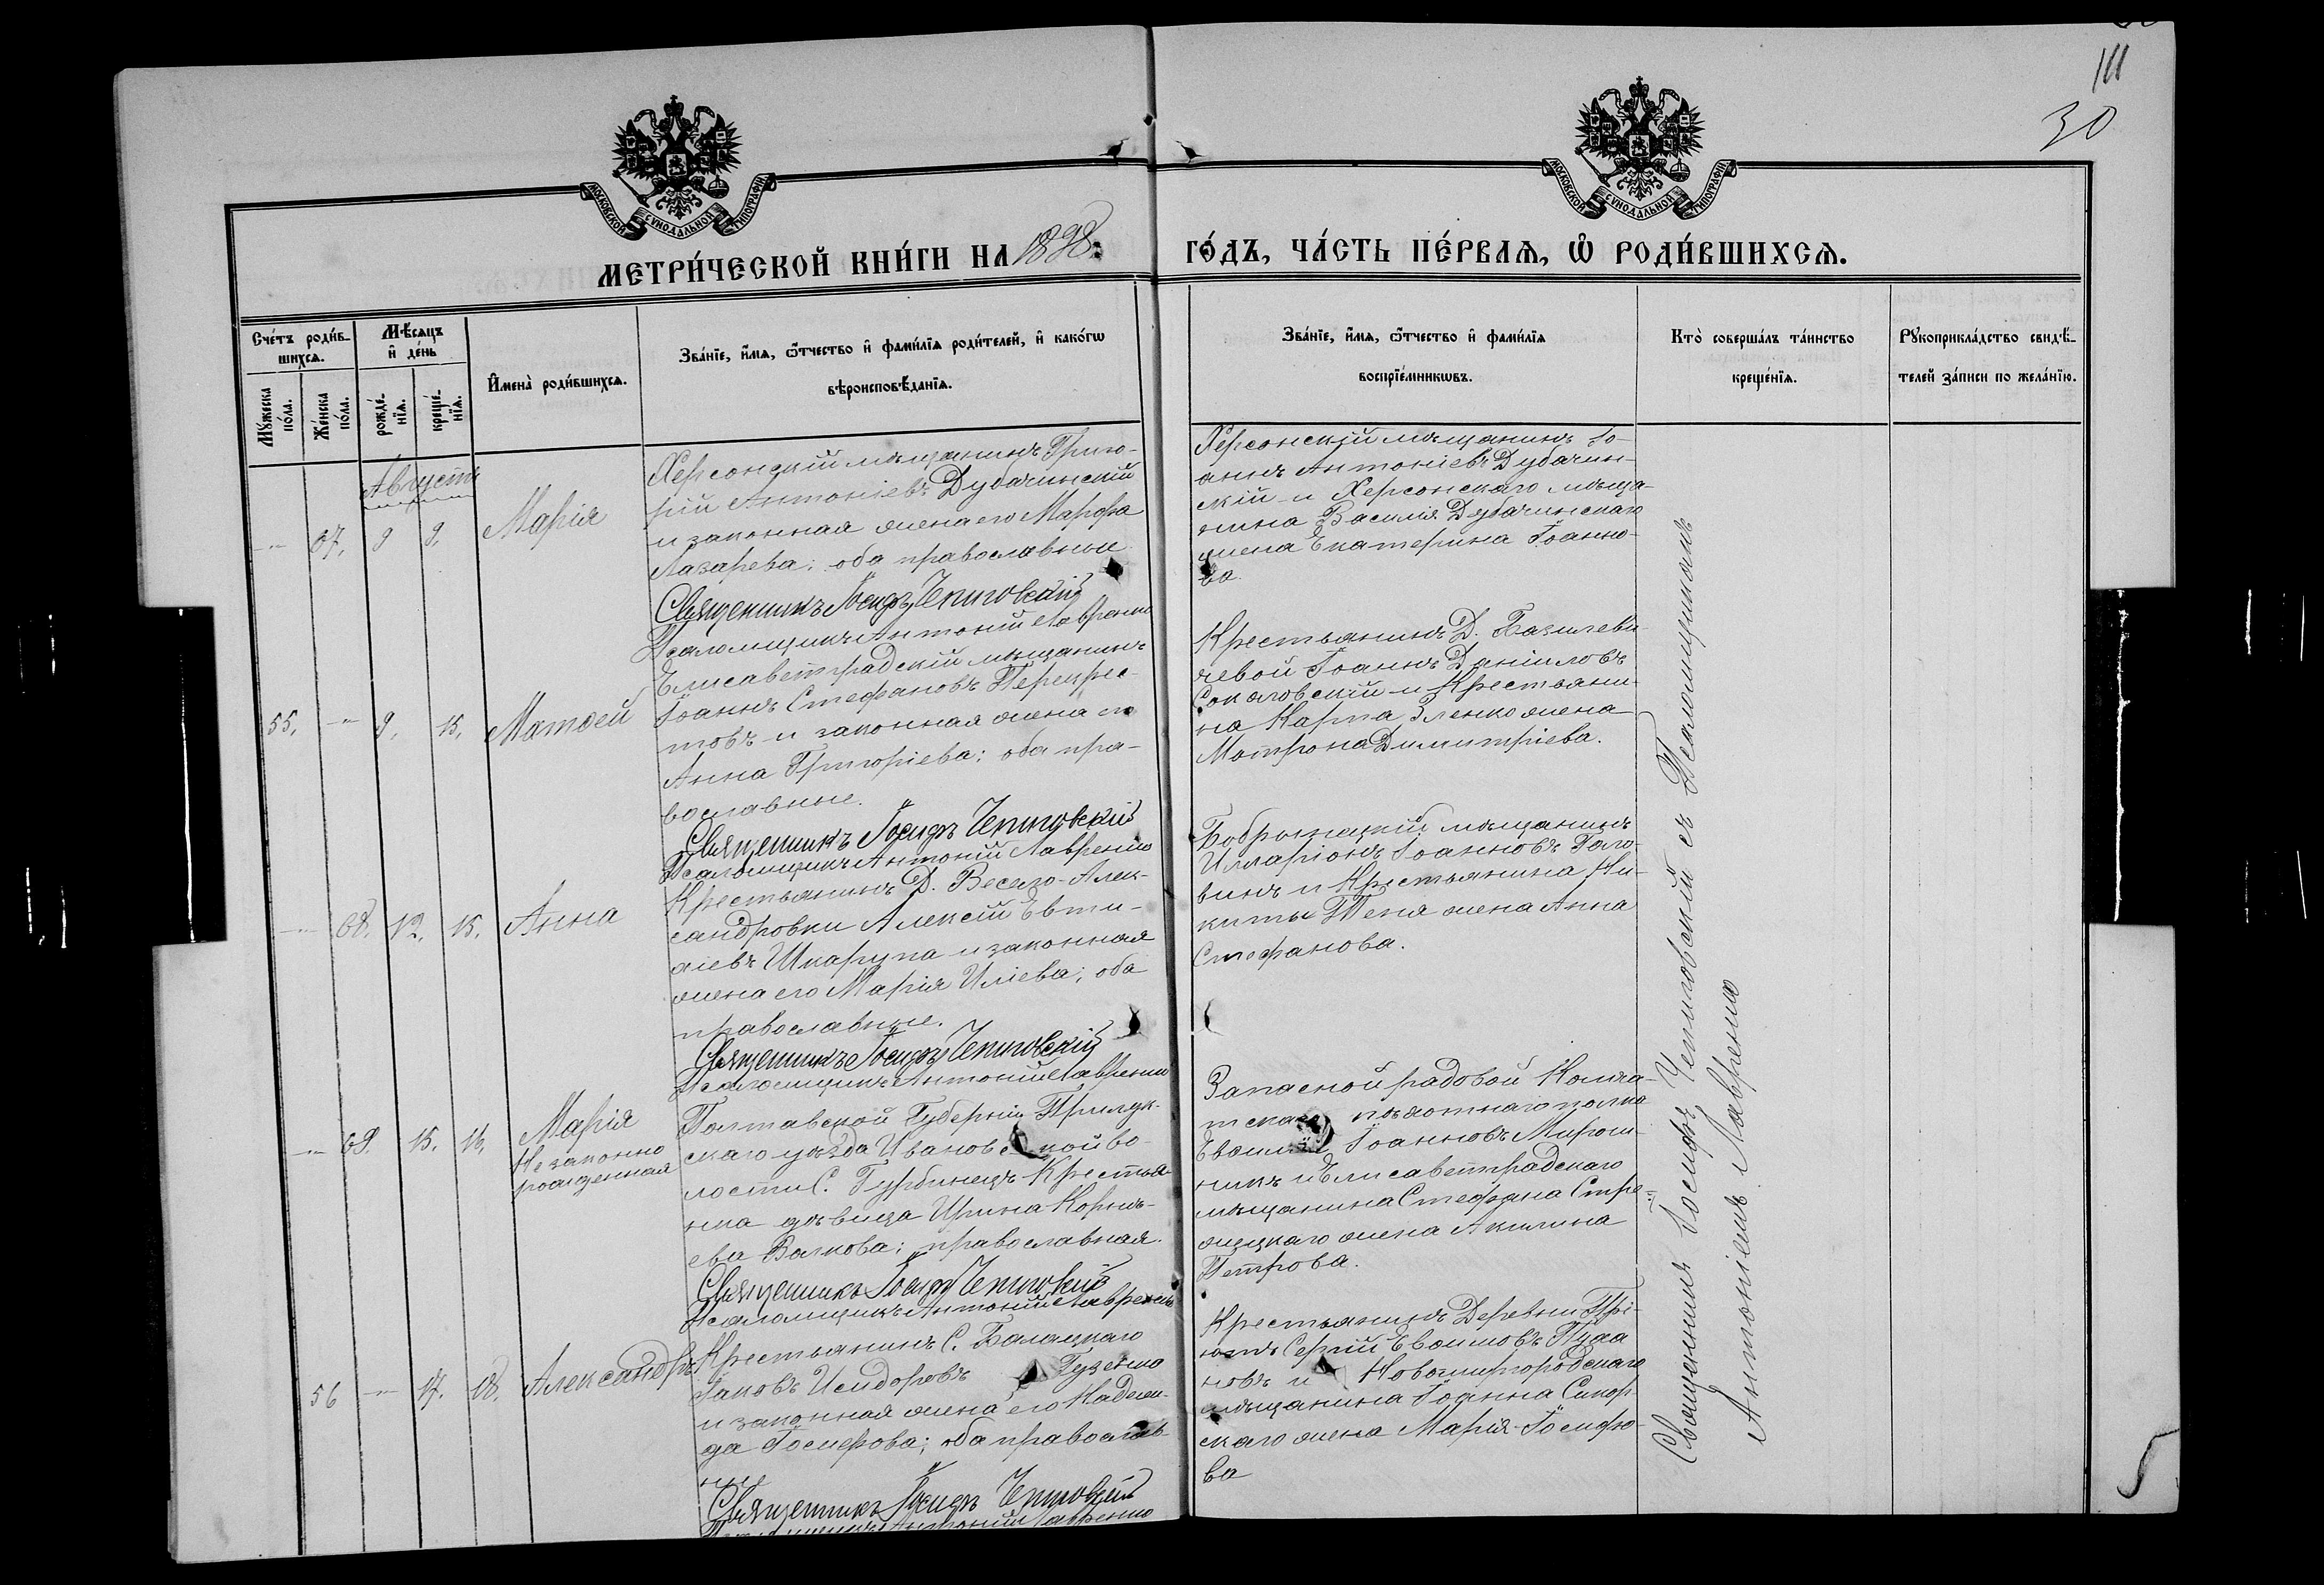 111
30
МОСКОВСКОЙ СѴНОДАЛЬНОЙ ТИПОГРАФІИ
МОСКОВСКОЙ СѴНОДАЛЬНОЙ ТИПОГРАФІИ
МЕТРИ́ЧЕСКОЙ КНИ́ГИ НА 1898
ГО́ДЪ, ЧА́СТЬ ПЕ́РВАѦ, Ѡ҆ РОДИ́ВШИХСѦ.
Сче́тъ роди́в-
шихсѧ.
Мѣ́сѧцъ
и҆ де́нь
И҆мена̀ роди́вшихсѧ.
Зва́нїе, и҆́мѧ, ѻ҆́тчество и҆ фами́лїѧ роди́телей, и҆ како́гѡ
вѣроисповѣ́данїѧ.
Мꙋ́жеска
по́ла.
Же́нска
по́ла.
рожде́-
нїѧ.
креще́-
нїѧ.
Зва́нїе, и҆́мѧ, ѻ҆́тчество и҆ фами́лїѧ
воспрїе́мникѡвъ.
Кто̀ соверша́лъ та́инство
креще́нїѧ.
Рꙋкоприкла́дство свидѣ́-
телей за́писи по жела́нїю.
Августъ
67. 9 9. Марія
Херсонскій мѣщанинъ Григо-
рій Антоніевъ Дубачинскій
и законная жена его Марфа
Лазарева; оба православные
Священникъ Іосифъ Чепиговскій
Псаломщикъ Антоній Лавренко
Херсонскій мѣщанинъ Іо-
аннъ Антоніевъ Дубачин-
скій и Херсонскаго мѣща-
нина Василія Дубачинскаго
жена Екатерина Іоанно-
ва.
55. 9. 15. Матѳей
Елисаветградскій мѣщанинъ
Іоаннъ Стефановъ Перекрес-
товъ и законная жена его
Анна Григоріева; оба пра-
вославные.
Священникъ Іосифъ Чепиговскій
Псаломщикъ Антоній Лавренко
Крестьянинъ Д. Базилеви-
чевой Іоаннъ Даніиловъ
Соколовскій и Крестьяни-
на Карпа Зленко жена
Мотрона Димитріева.
68. 12. 15. Анна
Крестьянинъ Д. Весело-Алек-
сандровки Алексій Евти-
хіевъ Шкарупа и законная
жена его Марія Иліева; оба
православные.
Священникъ Іосифъ Чепиговскій
Псаломщикъ Антоній Лавренко
Бобринецкій мѣщанинъ
Илларіонъ Іоанновъ Голо-
винъ и Крестьянина Ни-
киты жена Анна
Стефанова.
69. 15. 16. Марія
Незаконно
рожденная
Полтавской Губерніи Прилук-
скаго уѣзда Ивановской во-
лости С. Гурбинецъ Крестья-
нка дѣвица Ирина Корнѣ-
ева Волкова; православная.
Священникъ Іосифъ Чепиговскій
Псаломщикъ Антоній Лавренко
Запасной рядовой
пѣхотнаго полка
Іоанновъ Мирош-
никъ и Елисаветградскаго
мѣщанина Стефана Стре-
жецкаго жена Акилина
Петрова.
56 17. 18. Александръ
Крестьянинъ С. Балацкаго
Іаковъ Исидоровъ Гузенко
и законная жена его Надеж-
да Іосифова; оба православ-
ные
Священникъ Іосифъ Чепиговскій
Псаломщикъ Антоній Лавренко
Крестьянинъ Деревни Прі-
ютъ Сергій
новъ и Новомиргородскаго
мѣщанина Іоанна Сикор-
скаго жена Марія Іосифо-
ва
Священникъ Іосифъ Чепиговскій съ Псаломщикомъ
Антоніемъ Лавренко
5